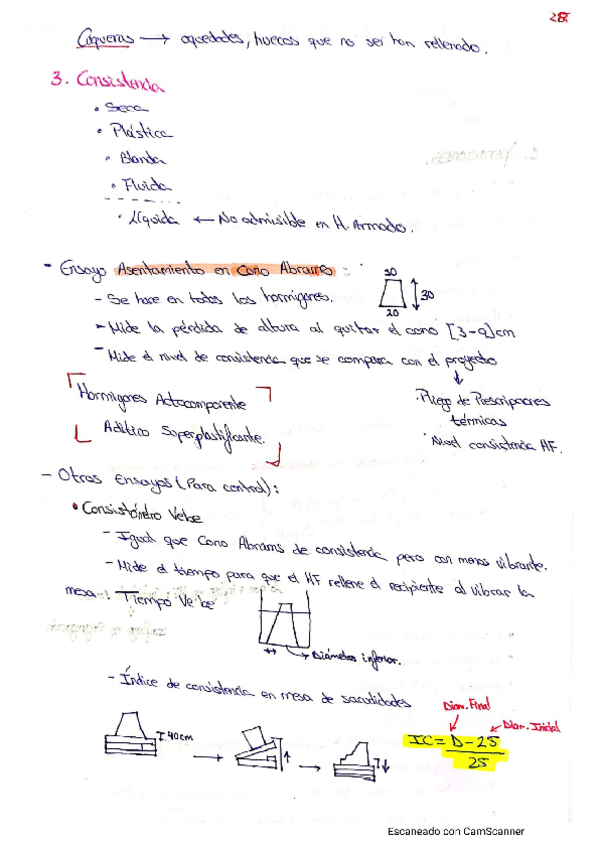 28
Coqueras → oquedades, huecos que no se han rellenado.
3. Consistencia
• Seca
• Plástica
• Blanda
• Fluida
• Líquida ← No admisible en H. Armado.
- Ensayo Asentamiento en Cono Abrams :
30
- Se hace en todos los hormigones.
30
20
- Mide la pérdida de altura al quitar el cono [3-9]cm
- Mide el nivel de consistencia que se compara con el proyecto
Hormigones Autocomponente
· Pliego de Prescripciones
térmicas
Aditivo Superplastificante.
· Nivel consistencia HF.
- Otros ensayos (Para control):
• Consistómetro Vebe
- Igual que Cono Abrams de consistencia pero con mesa vibrante.
- Mide el tiempo para que el HF rellene el recipiente al vibrar la
mesa : Tiempo Vebe
Diámetro inferior.
- Índice de consistencia en mesa de sacudidas
Diam. Final
Diam. Inicial
I. 40cm
IC = D - 25
25
Escaneado con CamScanner